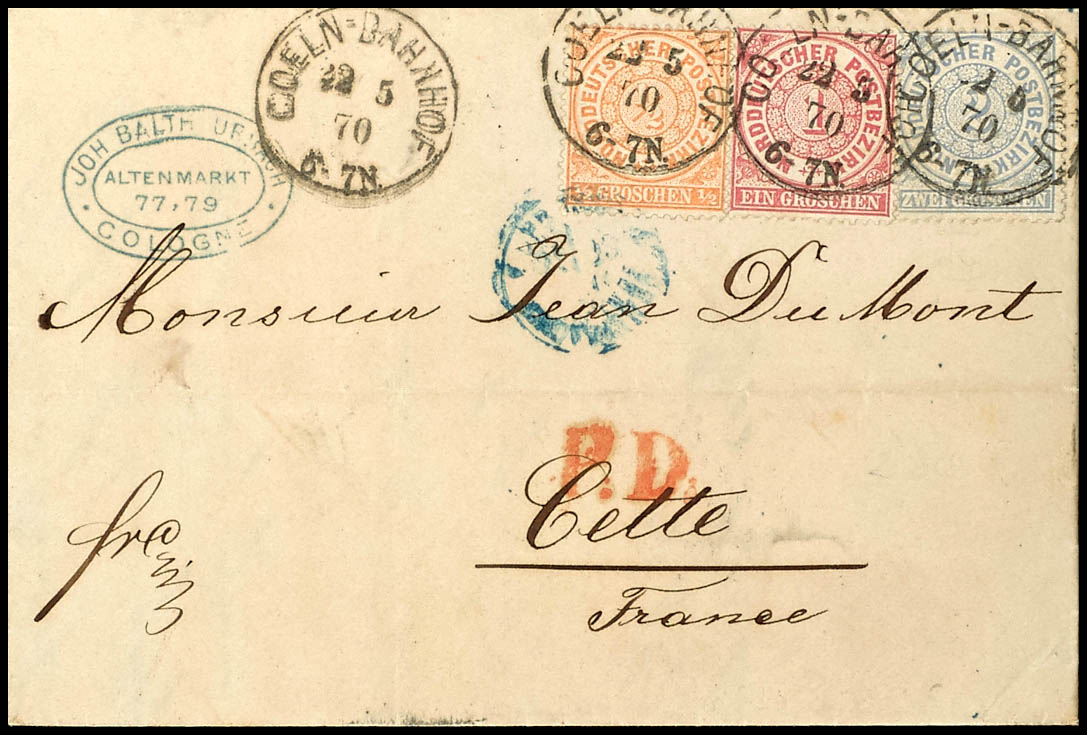 COELN-BAHNHOF
22 5
70
6-7N.
COELN-BAHNHOF
22 5
70
6-7N.
COELN-BAHNHOF
22 5
70
6-7N.
COELN-BAHNHOF
22 5
70
6-7N.
NORDDEUTSCHER POSTBEZIRK
1/2
1/2 GROSCHEN 1/2
NORDDEUTSCHER POSTBEZIRK
1
EIN GROSCHEN
NORDDEUTSCHER POSTBEZIRK
2
ZWEI GROSCHEN
JOH BALTH
ALTENMARKT
77,79
COLOGNE
Monsieur Jean DuMont
P.D.
Cette
France